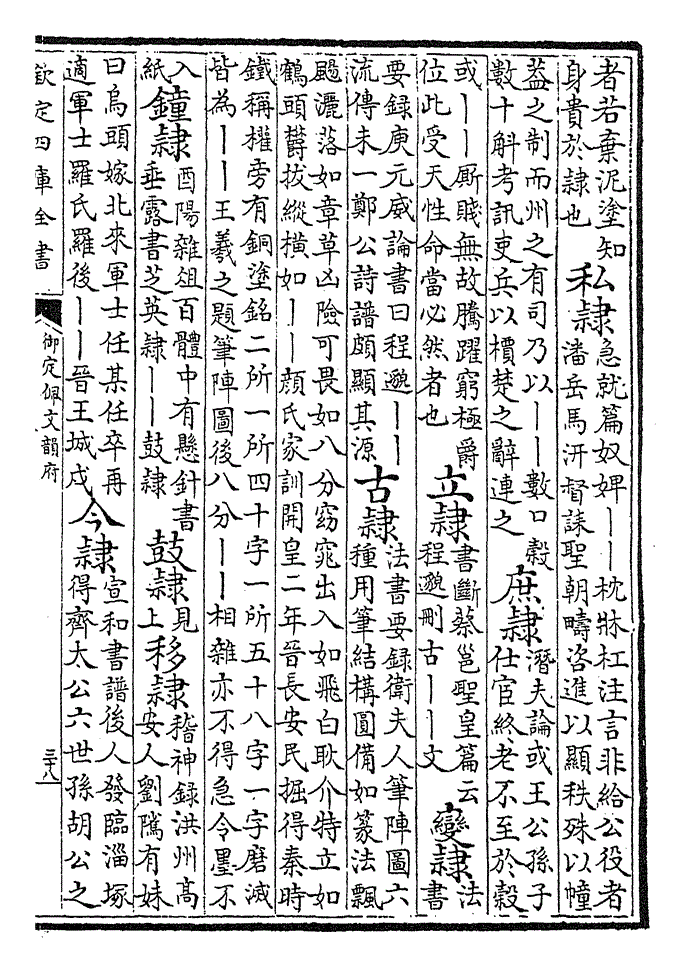 者若棄泥塗知
身貴於隸也
私隸
急就篇奴婢｜｜枕牀杠注言非給公役者
潘岳馬汧督誄聖朝疇咨進以顯秩殊以幢
葢之制而州之有司乃以｜｜數口榖
數十斛考訊吏兵以檟楚之辭連之
庶隸
潛夫論或王公孫子
仕官終老不至於榖
或｜｜厮賤無故騰躍窮極爵
位此受天性命當必然者也
立隸
書斷蔡邕聖皇篇云
程邈刪古｜｜文
變隸
法
書
要録庾元威論書曰程邈｜｜
流傳未一鄭公詩譜頗顯其源
古隸
法書要録衛夫人筆陣圖六
種用筆結構圓備如篆法飄
颺灑落如章草凶險可畏如八分窈窕出入如飛白耿介特立如
鶴頭欝拔縱橫如｜｜顔氏家訓開皇二年晉長安民掘得秦時
鐵稱權旁有銅塗銘二所一所四十字一所五十八字一字磨滅
皆為｜｜王羲之題筆陣圖後八分｜｜相雜亦不得急令墨不
入
紙
鐘隸
酉陽雜俎百體中有懸針書
垂露書芝英隸｜｜鼓隸
鼓隸
見
上
移隸
稽神録洪州高
安人劉隲有妹
曰烏頭嫁北來軍士任某任卒再
適軍士羅氏羅後｜｜晉王城戍
今隸
宣和書譜後人發臨淄塚
得齊太公六世孫胡公之
欽定四庫全書
御定佩文韻府
三十八